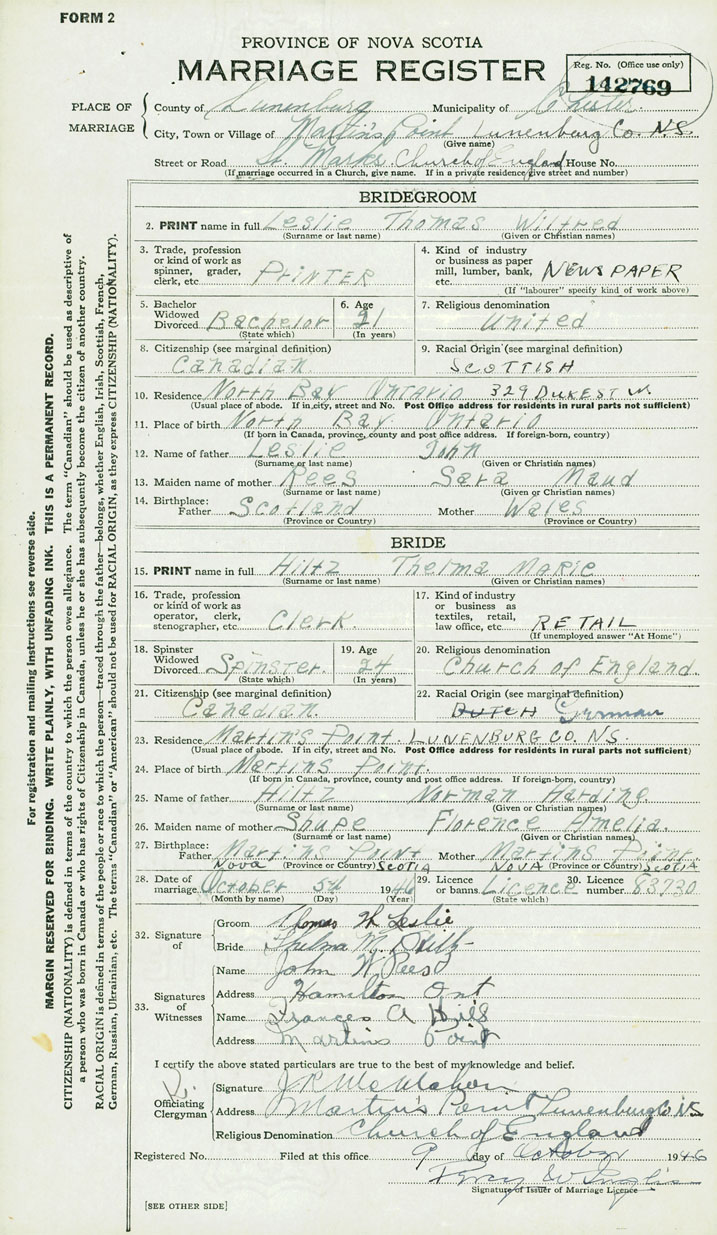 FORM 2
PROVINCE OF NOVA SCOTIA
MARRIAGE REGISTER
Reg. No. (Office use only)
142769
PLACE OF MARRIAGE
County of Lunenburg Municipality of Chester.
City, Town or Village of Martin's Point Lunenburg Co. N.S.
(Give name)
Street or Road St. Marks Church of England House No.
(If marriage occurred in a Church, give name. If in a private residence give street and number)
BRIDEGROOM
2. PRINT name in full Leslie Thomas Wilfred
(Surname or last name) (Given or Christian names)
3. Trade, profession or kind of work as spinner, grader, clerk, etc. PRINTER
4. Kind of industry or business as paper mill, lumber, bank, etc. NEWSPAPER
(If "labourer" specify kind of work above)
5. Bachelor Widowed Divorced Bachelor
(State which)
6. Age 21
(In years)
7. Religious denomination United
8. Citizenship (see marginal definition) Canadian.
9. Racial Origin (see marginal definition) SCOTTISH
10. Residence North Bay Ontario 329 DUKE ST W.
(Usual place of abode. If in city, street and No. Post Office address for residents in rural parts not sufficient)
11. Place of birth North Bay Ontario
(If born in Canada, province, county and post office address. If foreign-born, country)
12. Name of father Leslie John
(Surname or last name) (Given or Christian names)
13. Maiden name of mother Rees Sara Maud
(Surname or last name) (Given or Christian names)
14. Birthplace: Father Scotland Mother Wales
(Province or Country) (Province or Country)
BRIDE
15. PRINT name in full Hiltz Thelma Marie
(Surname or last name) (Given or Christian names)
16. Trade, profession or kind of work as operator, clerk, stenographer, etc. Clerk.
17. Kind of industry or business as textiles, retail, law office, etc. RETAIL
(If unemployed answer "At Home")
18. Spinster Widowed Divorced Spinster.
(State which)
19. Age 24
(In years)
20. Religious denomination Church of England.
21. Citizenship (see marginal definition) Canadian.
22. Racial Origin (see marginal definition) DUTCH German
23. Residence Martin's Point. LUNENBURG CO. N.S.
(Usual place of abode. If in city, street and No. Post Office address for residents in rural parts not sufficient)
24. Place of birth Martins Point.
(If born in Canada, province, county and post office address. If foreign-born, country)
25. Name of father Hiltz Norman Harding.
(Surname or last name) (Given or Christian names)
26. Maiden name of mother Shupe Florence Amelia.
(Surname or last name) (Given or Christian names)
27. Birthplace: Father Martins Point Mother Martins Point.
Nova (Province or Country) SCOTIA NOVA (Province or Country) SCOTIA
28. Date of marriage October 5th 1946
(Month by name) (Day) (Year)
29. Licence or banns Licence
(State which)
30. Licence number 83730
32. Signature of
Groom Thomas W Leslie
Bride Thelma M. Hiltz
33. Signatures of Witnesses
Name John W Rees
Address Hamilton Ont
Name Frances A
Address Martins Point
I certify the above stated particulars are true to the best of my knowledge and belief.
Officiating Clergyman
Signature J R McMahon
Address Martin's Point Lunenburg Co NS
Religious Denomination Church of England
Registered No. Filed at this office 9 day of October 1946
Percy W
Signature of Issuer of Marriage Licence
[SEE OTHER SIDE]
For registration and mailing instructions see reverse side.
MARGIN RESERVED FOR BINDING. WRITE PLAINLY, WITH UNFADING INK. THIS IS A PERMANENT RECORD.
CITIZENSHIP (NATIONALITY) is defined in terms of the country to which the person owes allegiance. The term "Canadian" should be used as descriptive of
a person who was born in Canada or who has rights of Citizenship in Canada, unless he or she has subsequently become the citizen of another country.
RACIAL ORIGIN is defined in terms of the people or race to which the person—traced through the father—belongs, whether English, Irish, Scottish, French,
German, Russian, Ukrainian, etc. The terms "Canadian" or "American" should not be used for RACIAL ORIGIN, as they express CITIZENSHIP (NATIONALITY).